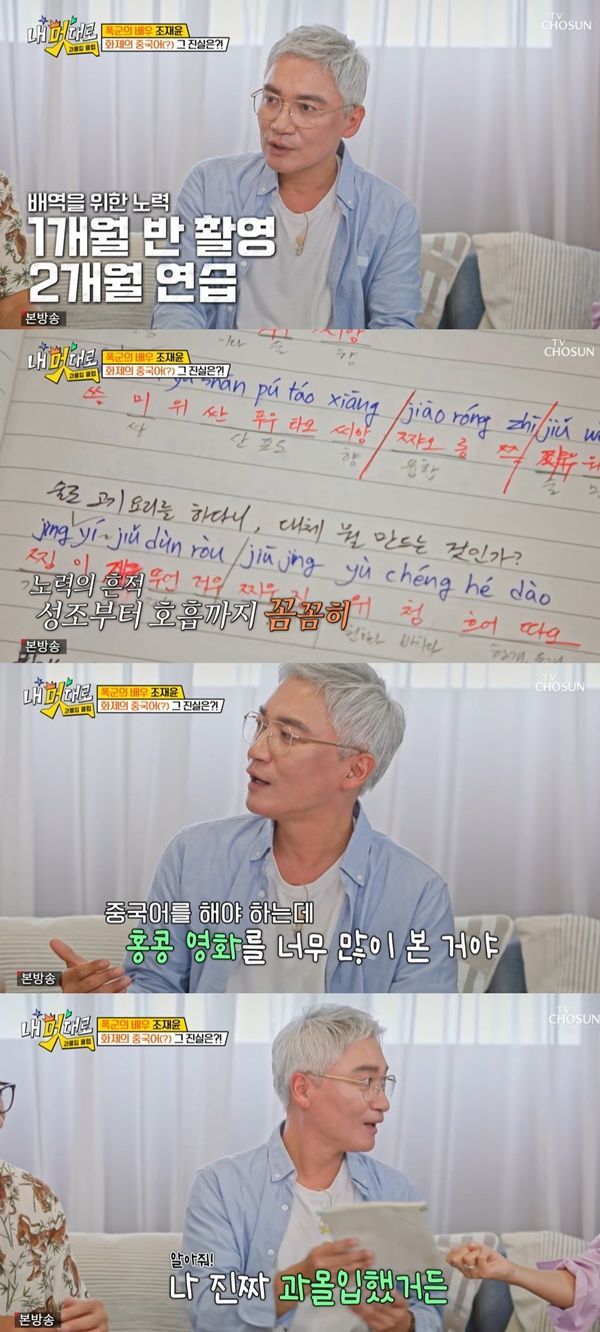 내멋대로
과몰입 클럽
폭군의 배우 조재윤
화제의 중국어(?) 그 진실은?!
TV
CHOSUN
배역을 위한 노력
1개월 반 촬영
2개월 연급
본방송
내멋대로
과몰입 클럽
폭군의 배우 조재윤
화제의 중국어(?) 그 진실은?!
TV
CHOSUN
shān pú táo xiāng jiāo róng zhī jiǔ
쓩 미 위 싼 푸우 타오 씨앙 쨔오 릉 쯔
싹 산 포도 향 융합 술
술로 고기 요리를 하다니, 대체 뭘 만드는 것인가?
jìng yí jiǔ dùn ròu jiǔ jìng yù chéng hé dào
찜 이 뚜선 져우 찌우 위 청 흐어 따오
노력의 흔적
성조부터 호흡까지 꼼꼼히
본방송
내멋대로
과몰입 클럽
폭군의 배우 조재윤
화제의 중국어(?) 그 진실은?!
TV
CHOSUN
중국어를 해야 하는데
홍콩 영화를 너무 많이 본 거야
본방송
내멋대로
과몰입 클럽
폭군의 배우 조재윤
화제의 중국어(?) 그 진실은?!
TV
CHOSUN
알아줘!
나 진짜 과몰입했거든
본방송